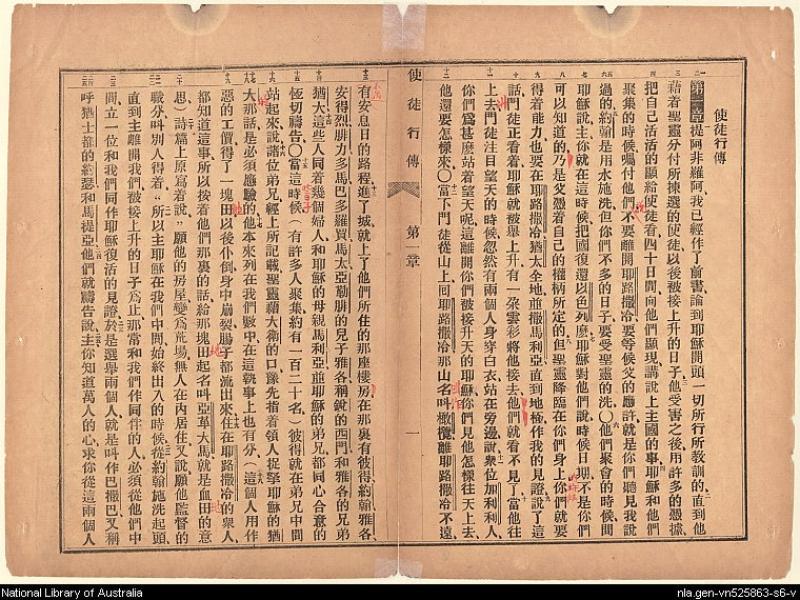 使徒行傳
第一章提阿非羅阿、我已經作了前書、論到耶穌開頭一切所行所教訓的、直到他
藉着聖靈分付所揀選的使徒、以後被接上升的日子、他受害之後、用許多的憑據、
把自己活活的顯給使徒看、四十日間向他們顯現、講說上主國的事、耶穌和他們
聚集的時候、囑付他們、不要離開耶路撒冷、要等候父的應許、就是你們聽見我說
過的、約翰是用水施洗、但你們不多的日子、要受聖靈的洗、〇他們聚會的時候、問
耶穌說、主你就在這時候、把國復還以色列麽、耶穌對他們說、時候日期、不是你們
可以知道的、乃是父憑着自己的權柄所定的、但聖靈降臨在你們身上、你們就要
得着能力、也要在耶路撒冷、猶太全地、並撒馬利亞、直到地極、作我的見證、說了這
話、門徒正看着、耶穌就被舉上升、有一朶雲彩將他接去、他們就看不見了、當他往
上去、門徒注目望天的時候、忽然有兩個人、身穿白衣、站在旁邊、說衆位加利利人、
你們爲甚麽站着望天呢、這離開你們被接升天的耶穌、你們見他怎樣往天上去、
他還要怎樣來、〇當下門徒從山上回耶路撒冷、那山名叫橄欖、離耶路撒冷不遠、
使徒行傳 第一章 一
有安息日的路程、進了城、就上了他們所住的那座樓房、在那裏有彼得、約翰、雅各、
安得烈、腓力、多馬、巴多羅買、馬太、亞勒腓的兒子雅各、稱銳的西門、和雅各的兄弟
猶大、這些人同着幾個婦人、和耶穌的母親馬利亞、並耶穌的弟兄、都同心合意的
恆切禱告、〇當這時候、（有許多人聚集、約有一百二十名）彼得就在弟兄中間
站起來說、諸位弟兄、經上所記載聖靈藉大衛的口、豫先指着領人捉拏耶穌的猶
大、那話是必須應驗的、他本來列在我們數中、在這執事上也有分、（這個人用作
惡的工價、得了一塊田、以後仆倒、身中崩裂、腸子都流出來、住在耶路撒冷的衆人、
都知道這事、所以按着他們那裏的話、給那塊田起名叫亞革大馬、就是血田的意
思）詩篇上原寫着說、願他的房屋變爲荒場、無人在內居住、又說、願他監督的
職分、叫別人得着、所以主耶穌在我們中間始終出入的時候、從約翰施洗起頭、
直到主離開我們被接上升的日子爲止、那當和我們作同伴的人、必須從他們中
間立一位、和我們同作耶穌復活的見證、於是選舉兩個人、就是叫作巴撒巴、又稱
呼猶士都的約瑟、和馬提亞、他們就禱告說、主你知道萬人的心、求你從這兩個人
National Library of Australia
nla.gen-vn525863-s6-v